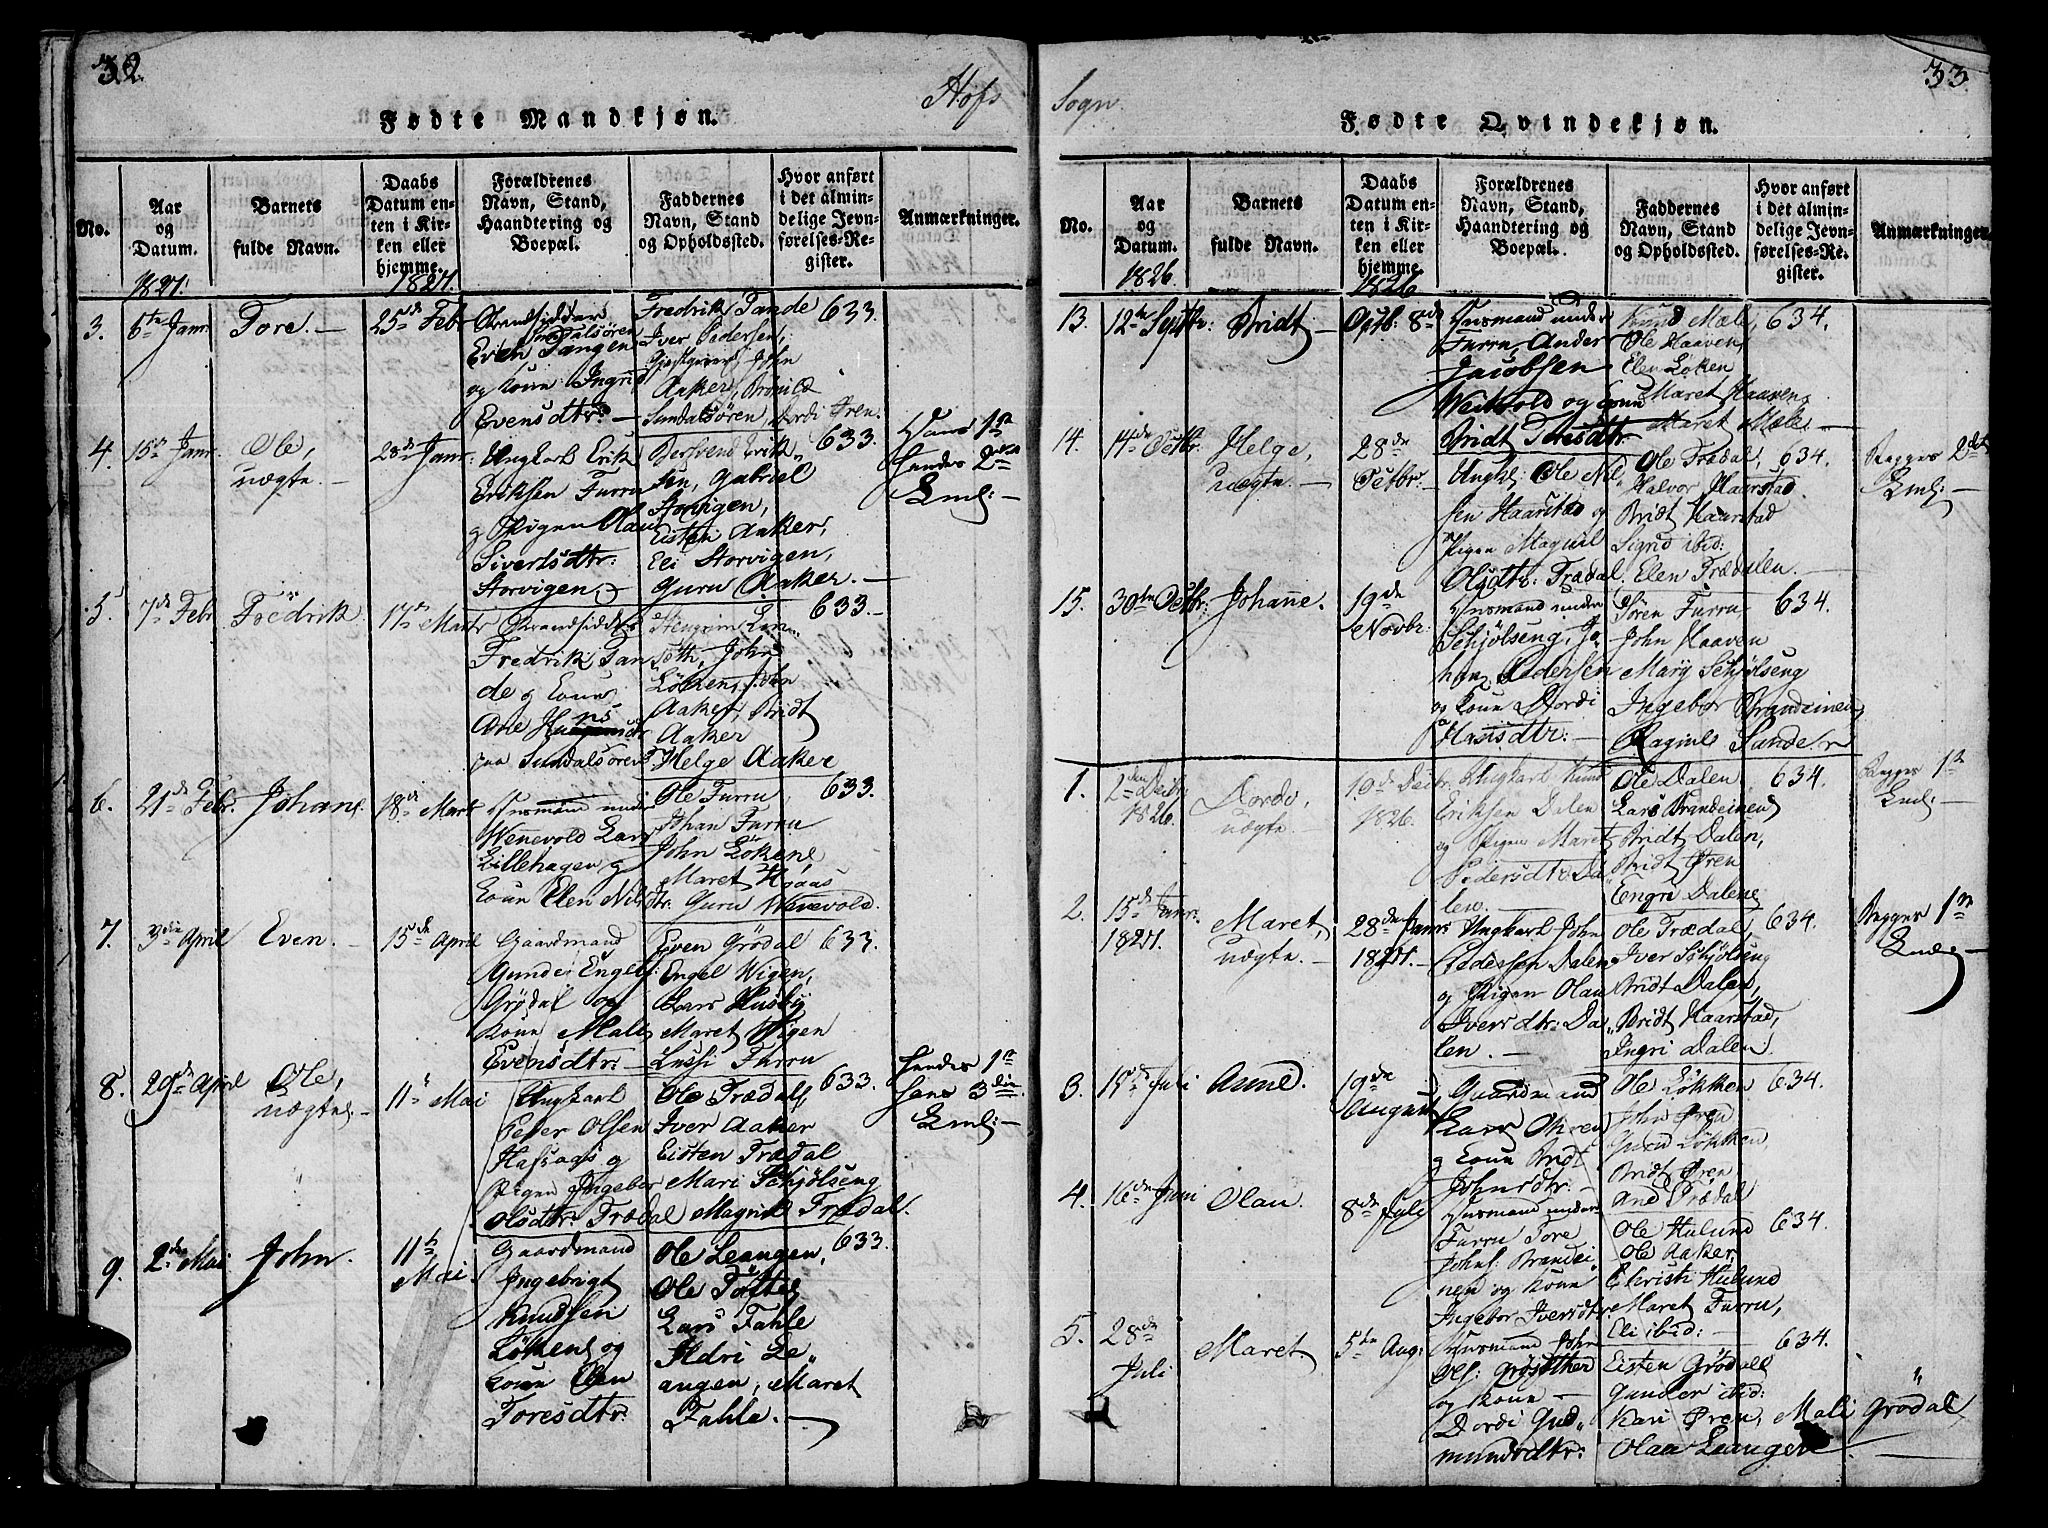 32.
Hofs
Fødte Mandkjøn.
No.
Aar
og
Datum.
Barnets
fulde Navn.
Daabs
Datum en-
ten i Kir-
ken eller
hjemme.
Forældrenes
Navn, Stand,
Haandtering og
Boepæl.
Faddernes
Navn, Stand
og Opholdssted.
Hvor anført
i det almin-
delige Jevn-
førelses-Re-
gister.
Anmærkninger.
1827.
1827.
3.
6te Janr
Tore.
25de Febr
Strandsidder
Sundalsören
Erich Tangen
og Kone Ingrid
Evensdtr.
Fredrik Tande
Iver Pedersen,
Gjestgiver John
Aaker,
Sundalsören, Dordi Øren.
633.
4.
15de Janr
Ole,
uægte.
28de Janr:
Ungkarl Erik
Eriksen Furru
og Pigen Olau
Sivertsdtr:
Storvigen
Erik-
sen, Gabriel
Storvigen,
Eisten Aaker,
Eli Storvigen,
Guru Aaker.
633.
Hans 1ste
Hendes 2det
Leml:
5
7de Febr
Fredrik
17de Marts
Strandsidder
Fredrik Tan
de og Kone
Ane Hansdtr
paa Sundalsören
John
Löken,
Aaker, Bridt
Aaker
Helge Aaker
633.
6.
21de Febr.
Johan
18de Marts
Huusmand under
Wennevold Lars
Lillehagen og
Kone Elen Nilsdtr:
Ole Furru,
Johan Furru
John Lökene,
Maret Hoaas
Guru Wenevold.
633.
7.
3die April
Even.
15de April
Gaardmand
Gunder Engelsf.
Grödal og
Kone Mali
Evensdtr
Even Grödal
Engel Wigen,
Lars Husby
Maret Wigen
Lussi Furru
633.
8.
29de April
Ole,
uægte.
11te Mai
Ungkarl
Peder Olsen
Hafsaas og
Pigen Ingeber
Olsdtr: Trædal
Ole Trædal,
Iver Aaker
Eisten Trædal
Mari Schjölseng
Magnil Trædal.
633.
Hendes 1ste
Hans 3die
Leml:
9.
2den Mai
John.
11te
Mai
Gaardmand
Ingebrigt
Knudsen
Lökene og
Kone Elen
Toresdtr:
Ole Leangen,
Ole Töfte
Lars Fahle
Ildri Le„
angen, Maret
Fahle.
633.
33.
Sogn.
Fødte Qvindekjøn.
No.
Aar
og
Datum.
Barnets
fulde Navn.
Daabs
Datum en-
ten i Kir-
ken eller
hjemme.
Forældrenes
Navn, Stand,
Haandtering og
Boepæl.
Faddernes
Navn, Stand
og Opholdssted.
Hvor anført
i det almin-
delige Jevn-
førelses-Re-
gister.
Anmærkninger.
1826
1826
13.
12te Septbr:
Bridt
Octb: 8de
Huusmand under
Furru, Ander
Jacobsen
Weikvold og Kone
Bridt Toresdtr
Knud Mæle,
Ole Haaven,
Elen Löken
Maret Haaven,
Maret Mæle.
634.
14.
14de Octbr.
Helge,
uægte.
28de
Octbr:
Ungkl. Ole Nil„
sen Haarstad og
Pigen Magnil
Olsdtr: Trædal,
Ole Trædal,
Halvor Haarstad
Bridt Haarstad
Sigrid ibid:
Elen Trædalen.
634.
Begges 2det
Leml:
15.
30te Octbr:
Johanne.
19de
Novbr:
Huusmand under
Schjölseng, Jo
han Pedersen
og Kone Dordi
Hansdtr:
Sören Furru,
John Haaven
Mary Schjölseng
Ingebor Brandeinen,
Ragnil Sande.
634.
1.
2den Decbr
1826.
Dordi,
uægte.
10de Decbr.
1826.
Ungkarl Knud
Eriksen Dalen
og Pigen Maret
Pedersdtr Da„
len.
Ole Dalen
Lars Brandeinen
Bridt Dalen,
Bridt Øren
Engri Dalene
634.
Begges 1ste
Leml:
2.
15de Janr:
1827.
Maret,
uægte.
28de Janr:
1827.
Ungkarl John
Pedersen Dalen
og Pigen Olau
Iversdtr: Da„
len.
Ole Trædal,
Iver Schjölseng
Bridt Dalen,
Bridt Haarstad,
Ingri Dalen.
634.
Begges 1ste
Leml:
3.
15de Juli
Anne.
19de
August
Gaardmand
Lars Øren
og Kone Bridt
Johnsdtr:
Ole Løkken
John Øren
Guru Løkken
Bridt Øren
Ane Trædal
634.
4.
16de Juni
Olau.
8de Juli
Huusmand under
Furru Tore
Johns: Brandei
nen og Kone
Ingebor Iversdtr.
Ole Hulund
Ole Aaker,
Christi Hulund
Maret Furru,
Eli ibid:
634.
5.
28de
Juli
Maret.
5te Aug:
Huusmand John
Ols:
og Kone
Dordi Gud„
mundsdtr:
Eisten Grödal
Gunder ibid:
Kari Øren, Mali Grödal,
Olau Leangen
634.